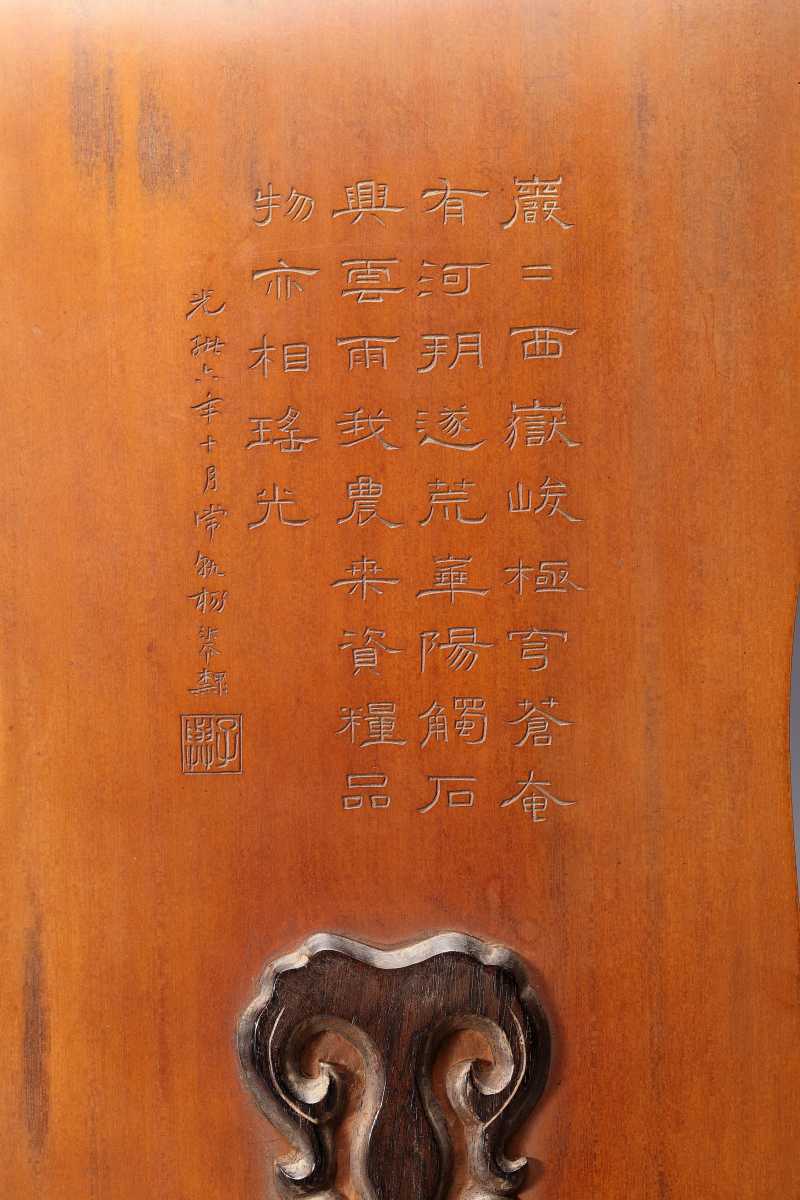 巖〻西嶽峻極穹蒼奄
有河朔遂荒華陽觸石
興雲雨我農桒資糧品
物亦相瑤光
光緒六年十月常熟楊沂孫